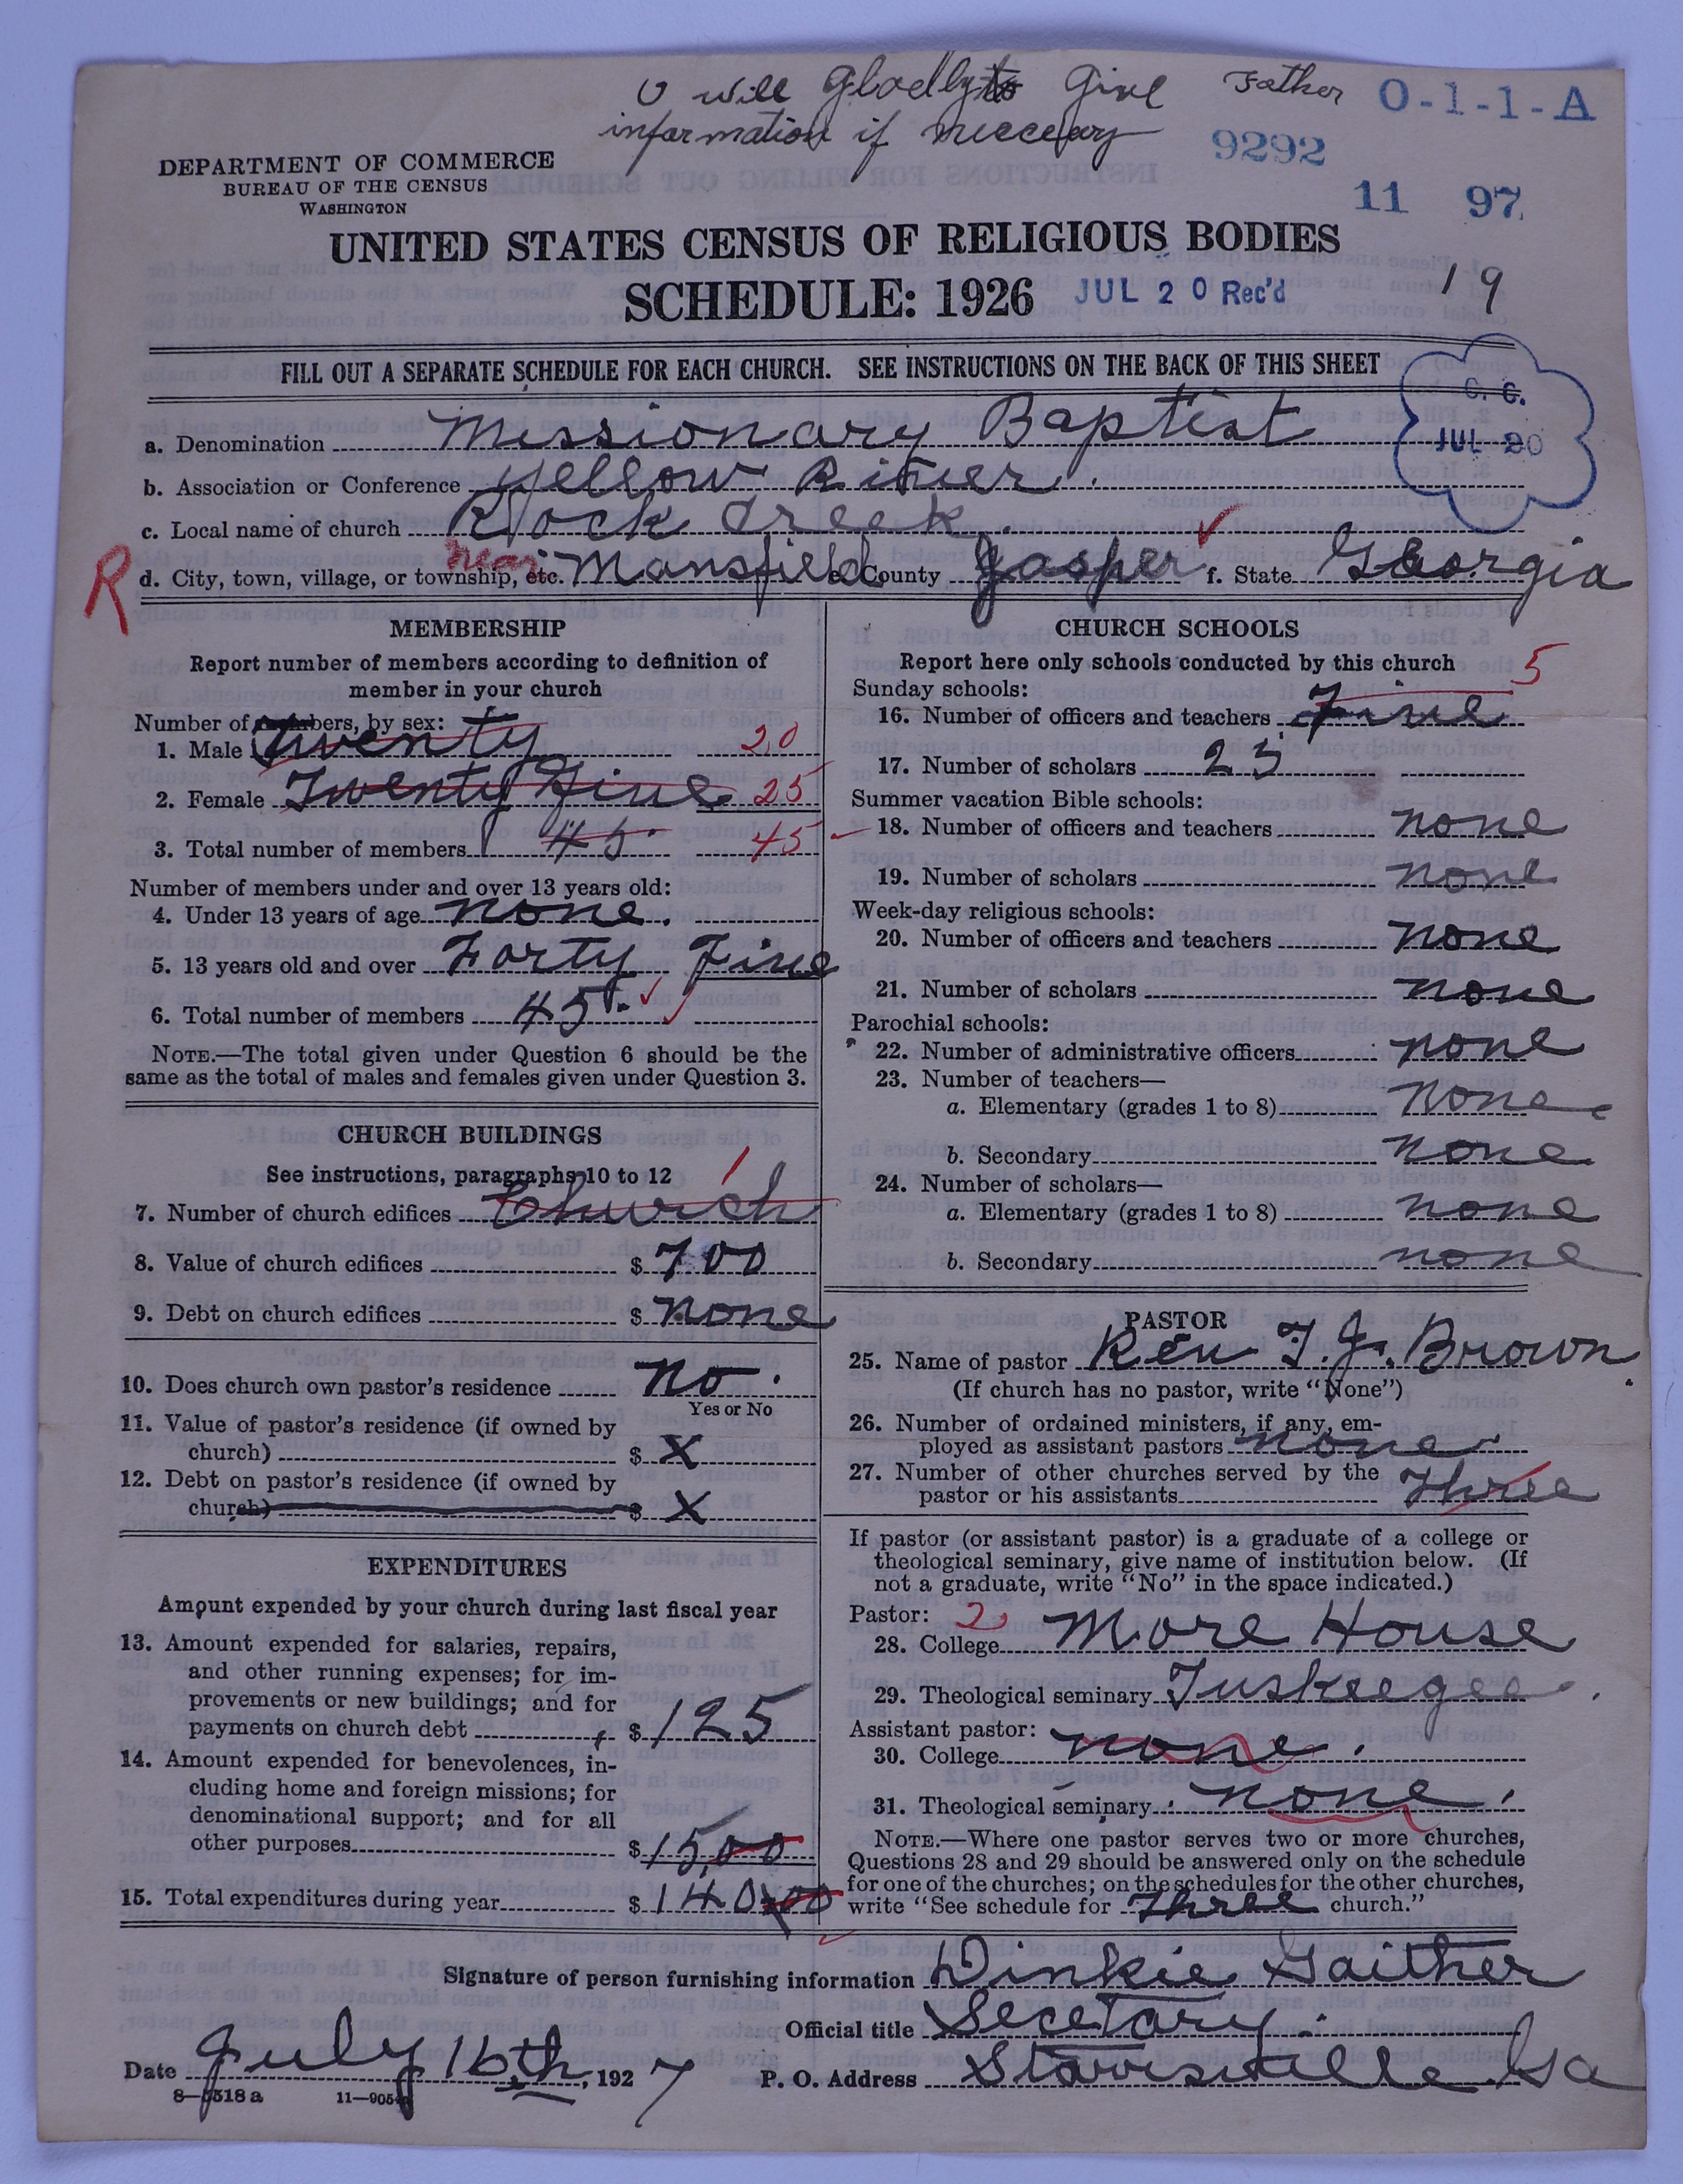 I will gladly to give Father
information if neccecary
O-1-1-A
9292
11 97
DEPARTMENT OF COMMERCE
BUREAU OF THE CENSUS
WASHINGTON
UNITED STATES CENSUS OF RELIGIOUS BODIES
SCHEDULE: 1926 JUL 20 Rec'd 19
FILL OUT A SEPARATE SCHEDULE FOR EACH CHURCH. SEE INSTRUCTIONS ON THE BACK OF THIS SHEET
C. C.
JUL 20
a. Denomination Missionary Baptist
b. Association or Conference Yellow River
c. Local name of church Rock Creek
R d. City, town, village, or township, etc. near Mansfield e. County Jasper f. State Georgia
MEMBERSHIP
Report number of members according to definition of
member in your church
Number of members, by sex:
1. Male Twenty 20
2. Female Twenty Five 25
3. Total number of members 45 45
Number of members under and over 13 years old:
4. Under 13 years of age none.
5. 13 years old and over Forty Five
6. Total number of members 45
NOTE.—The total given under Question 6 should be the
same as the total of males and females given under Question 3.
CHURCH BUILDINGS
See instructions, paragraphs 10 to 12
7. Number of church edifices Church 1
8. Value of church edifices $ 700
9. Debt on church edifices $ none
10. Does church own pastor's residence no.
Yes or No
11. Value of pastor's residence (if owned by
church) $ X
12. Debt on pastor's residence (if owned by
church) $ X
EXPENDITURES
Amount expended by your church during last fiscal year
13. Amount expended for salaries, repairs,
and other running expenses; for im-
provements or new buildings; and for
payments on church debt $ 125
14. Amount expended for benevolences, in-
cluding home and foreign missions; for
denominational support; and for all
other purposes $ 15,00
15. Total expenditures during year $ 140 00
CHURCH SCHOOLS
Report here only schools conducted by this church
Sunday schools:
16. Number of officers and teachers Five 5
17. Number of scholars 25
Summer vacation Bible schools:
18. Number of officers and teachers none
19. Number of scholars none
Week-day religious schools:
20. Number of officers and teachers none
21. Number of scholars none
Parochial schools:
22. Number of administrative officers none
23. Number of teachers—
a. Elementary (grades 1 to 8) none
b. Secondary none
24. Number of scholars—
a. Elementary (grades 1 to 8) none
b. Secondary none
PASTOR
25. Name of pastor Rev T. J. Brown
(If church has no pastor, write "None")
26. Number of ordained ministers, if any, em-
ployed as assistant pastors none.
27. Number of other churches served by the
pastor or his assistants Three
If pastor (or assistant pastor) is a graduate of a college or
theological seminary, give name of institution below. (If
not a graduate, write "No" in the space indicated.)
Pastor: 2
28. College More House
29. Theological seminary Tuskeegee.
Assistant pastor:
30. College none.
31. Theological seminary none.
NOTE.—Where one pastor serves two or more churches,
Questions 28 and 29 should be answered only on the schedule
for one of the churches; on the schedules for the other churches,
write "See schedule for Three church."
Signature of person furnishing information Dinkie Gaither
Official title Secetary.
Date July 16th, 1927 P. O. Address Starrsville Ga
8—5518 a 11—9054